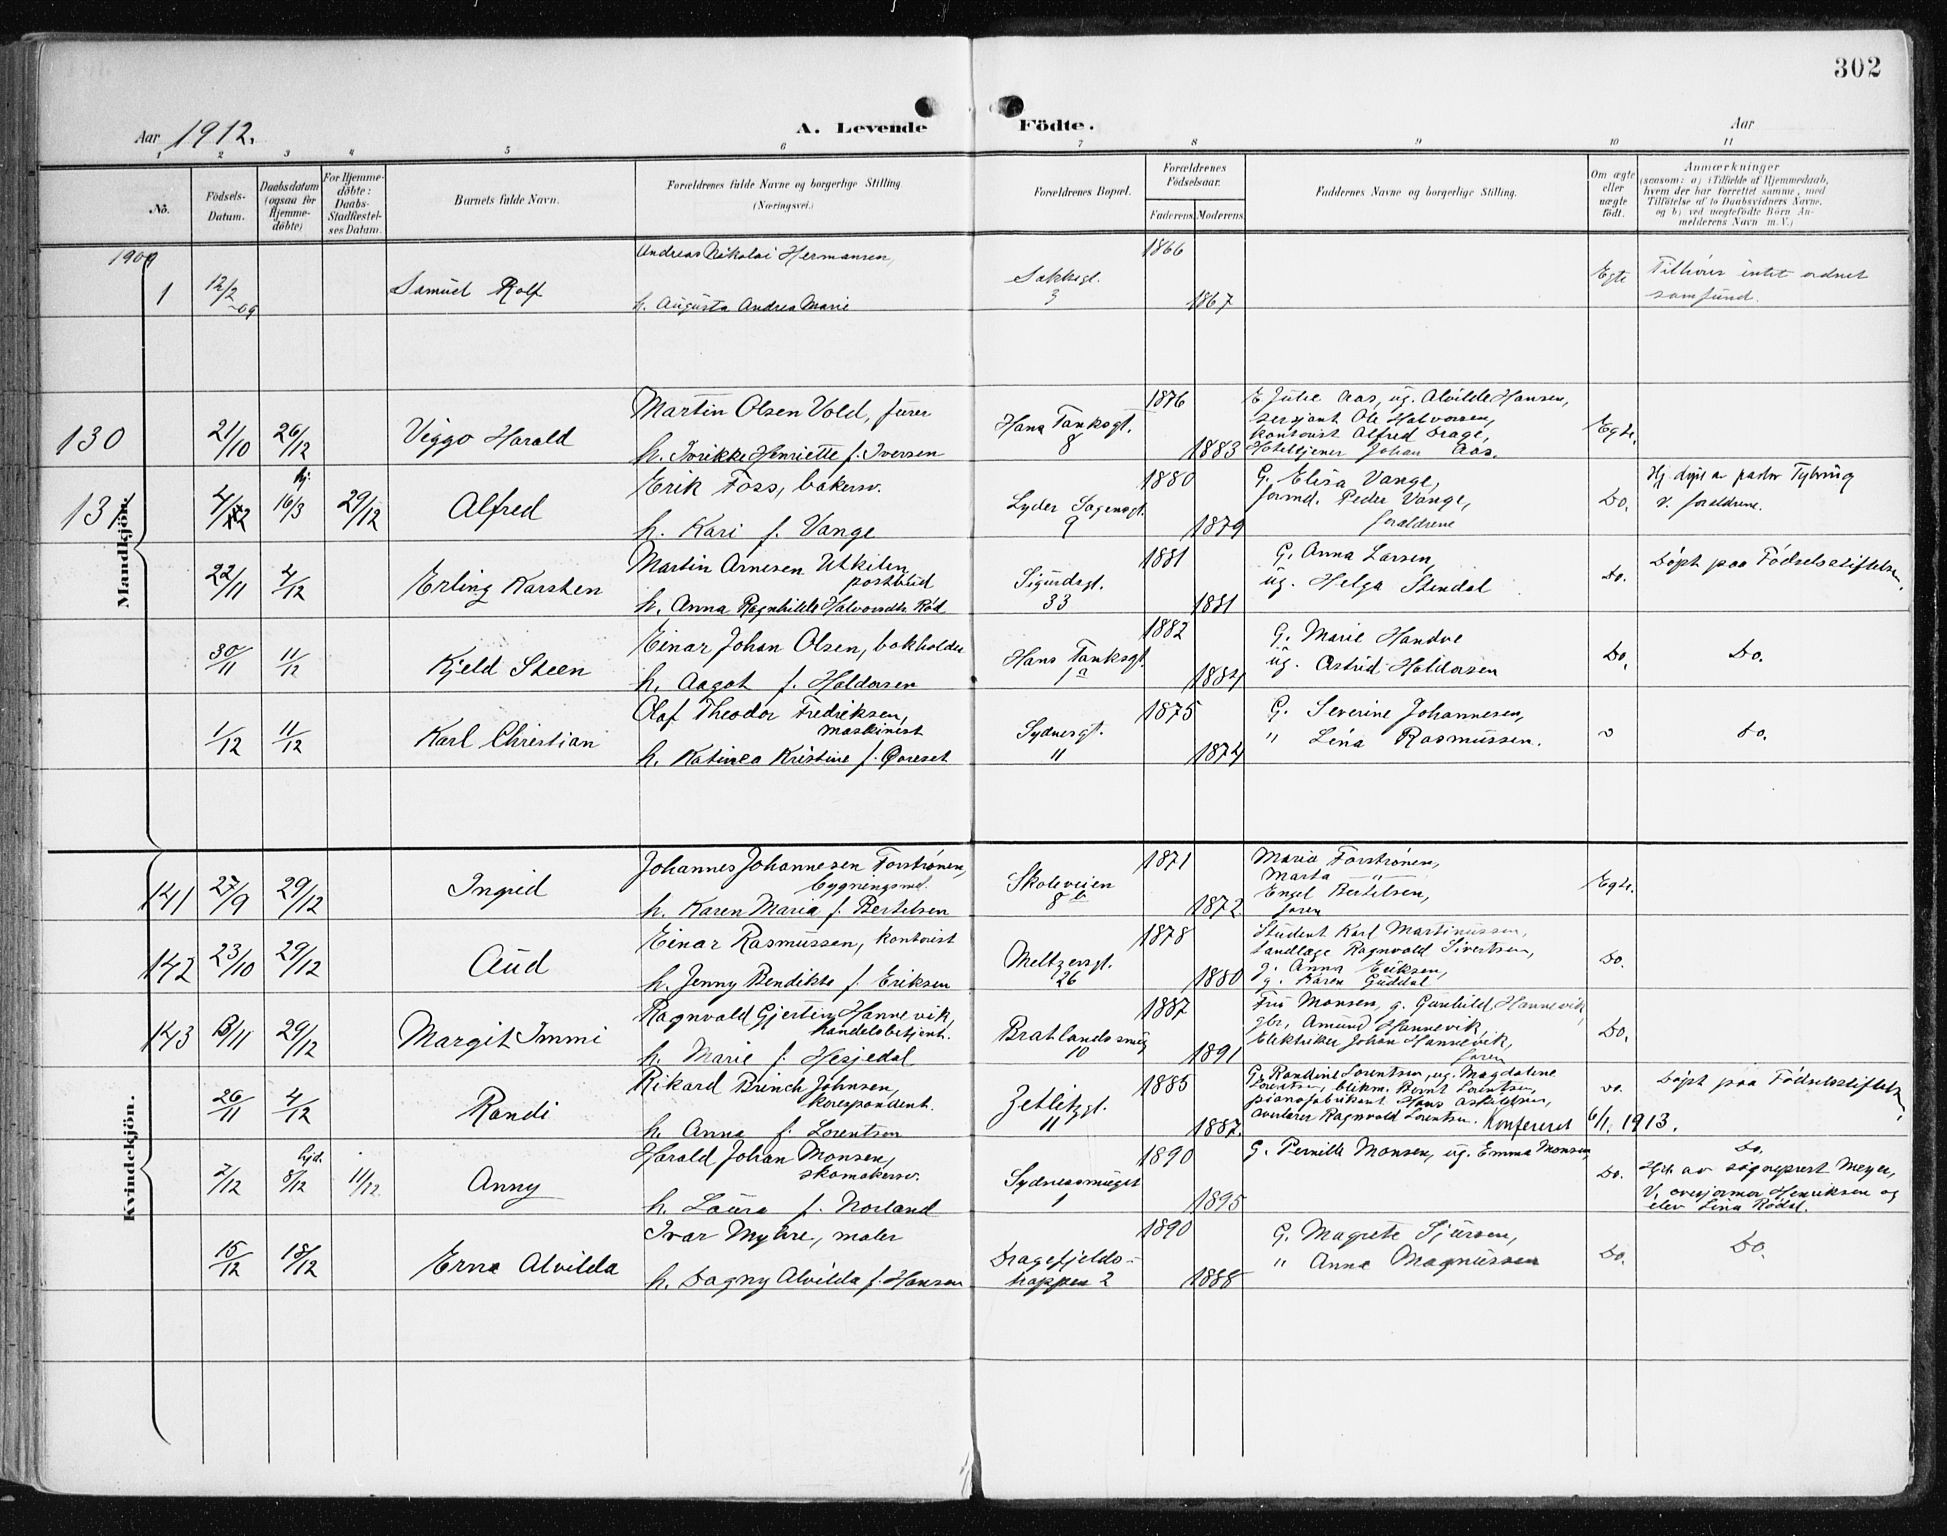 302
Aar 1912. A. Levende Födte. Aar
1 2 3 4 5 6 7 8 9 10 11
No. Födsels-Datum. Daabsdatum (ogsaa for Hjemmedöbte) For Hjemmedöbte: Daabs-Stadfæstelses Datum. Barnets fulde Navn. Forældrenes fulde Navne og borgerlige Stilling (Næringsvei.) Forældrenes Bopæl. Forældrenes Födselsaar. Faderens Moderens Faddernes Navne og borgerlige Stilling. Om ægte eller uægte födt. Anmærkninger (saasom: a) i Tilfælde af Hjemmedaab, hvem der har forrettet samme, med Tilföielse af to Daabsvidners Navne, og b) ved uægtefödte Börn Anmelderens Navn m.V.)
Mandkjön.
1909
Andreas Nikolai Hermansen, 1866
1 12/2 -09 Samuel Rolf Sakksgt. 3 Egte Tilhörer intet ordnet
h. Augusta Andrea Marie 1867 samfund.
Martin Olsen Vold, furer 1876 E Julie Aas, ug. Alvilde Hansen,
sersjant Ole Halvorsen,
130 21/10 26/12 Viggo Harald Hans Tanksgt. 8 kontorist Alfred Drage, Egte.
h. Inrikke Henriette f. Iversen 1883 Hoteltjener Johan Aas.
Erik Foss, bakersv. 1880 G. Elisa Vange, Hj. døpt a pastor Tybring
131 4/12 hj. 16/3 29/12 Alfred Lyder Sagensgt. 9 formd. Peder Vange, Do. V. foraldrene.
h. Kari f. Vange 1879 foraldrene
Martin Arnesen Utkilen, 1881 G. Anna Larsen, Döpt paa Födselsstiftelsen.
postbud
22/11 4/12 Erling Karsten Sigurdsgt. 33 ug. Helga Stendal Do.
h. Anna Ragnhilda Halvorsdtr. Röd 1881
Einar Johan Olsen, bokholder 1882 G. Marie Handve
30/11 11/12 Kjeld Steen Hans Tanksgt. 1a ug. Astrid Haldorsen Do. Do.
h. Aagot f. Haldorsen 1884
Olaf Theodor Fredriksen, 1875 G. Severine Johannesen,
maskinist
1/12 11/12 Karl Christian Sydnesgt. 11 " Lina Rasmussen. Do.
h. Katinca Kristine f. 1874
Kvindekjön.
Johannes Johannesen Forströnen, 1871 Maria Forströnen,
bygningssnd. Marta —"—
141 27/9 29/12 Ingrid Skoleveien 8b Engel Bertelsen, Egte.
h. Karen Maria f. Bertelsen 1872 faren
Einar Rasmussen, kontorist 1878 Student Karl Martinussen,
tandlæge Ragnvald Sivertsen,
142 23/10 29/12 Aud Meltzersgt. 26 g. Anna Eriksen, Do.
h. Jenny Bendikte f. Eriksen 1880 g. Karen Guddal
Ragnvald Gjertin Hannevik, 1887 Fru Monsen, g. Gunhild Hannevik,
handelsbetjent. gbr. Amund Hannevik,
143 13/11 29/12 Margit Immi Bratlandssmug 10 Elektriker Johan Hannevik, Do.
h. Marie f. Hesjedal 1891 faren
Rikard Brinch Johnsen, 1885 G. Randine Lorentsen, ug. Magdalene
korespondent. Lorentsen, blikm. Bernt Lorentsen, Do. Döpt paa Födselsstiftelsen,
26/11 4/12 Randi Zetlitzgt. 11 pianofabrikant Hans Askildsen,
h. Anna f. Lorentsen 1887. overlærer Ragnvald Lorentsen. Konfereret 6/1. 1913.
Harald Johan Monsen, 1890 G. Pernille Monsen, ug. Emma Monsen Do.
skomakersv.
2/12 hjd. 8/12 11/12 Anny Sydnessmuget 1 Do. Hjd. av sogneprest Meyer,
V. oversjormor Henriksen og
h. Laura f. Norland 1895 elev Lina Rödal.
Ivar Myhre, maler 1890 G. Magrete Sjursen,
15/12 18/12 Erna Alvilda Dragefjelds- " Anna Magnussen Do. Do.
h. Dagny Alvilda f. Hansen trappen 2 1888